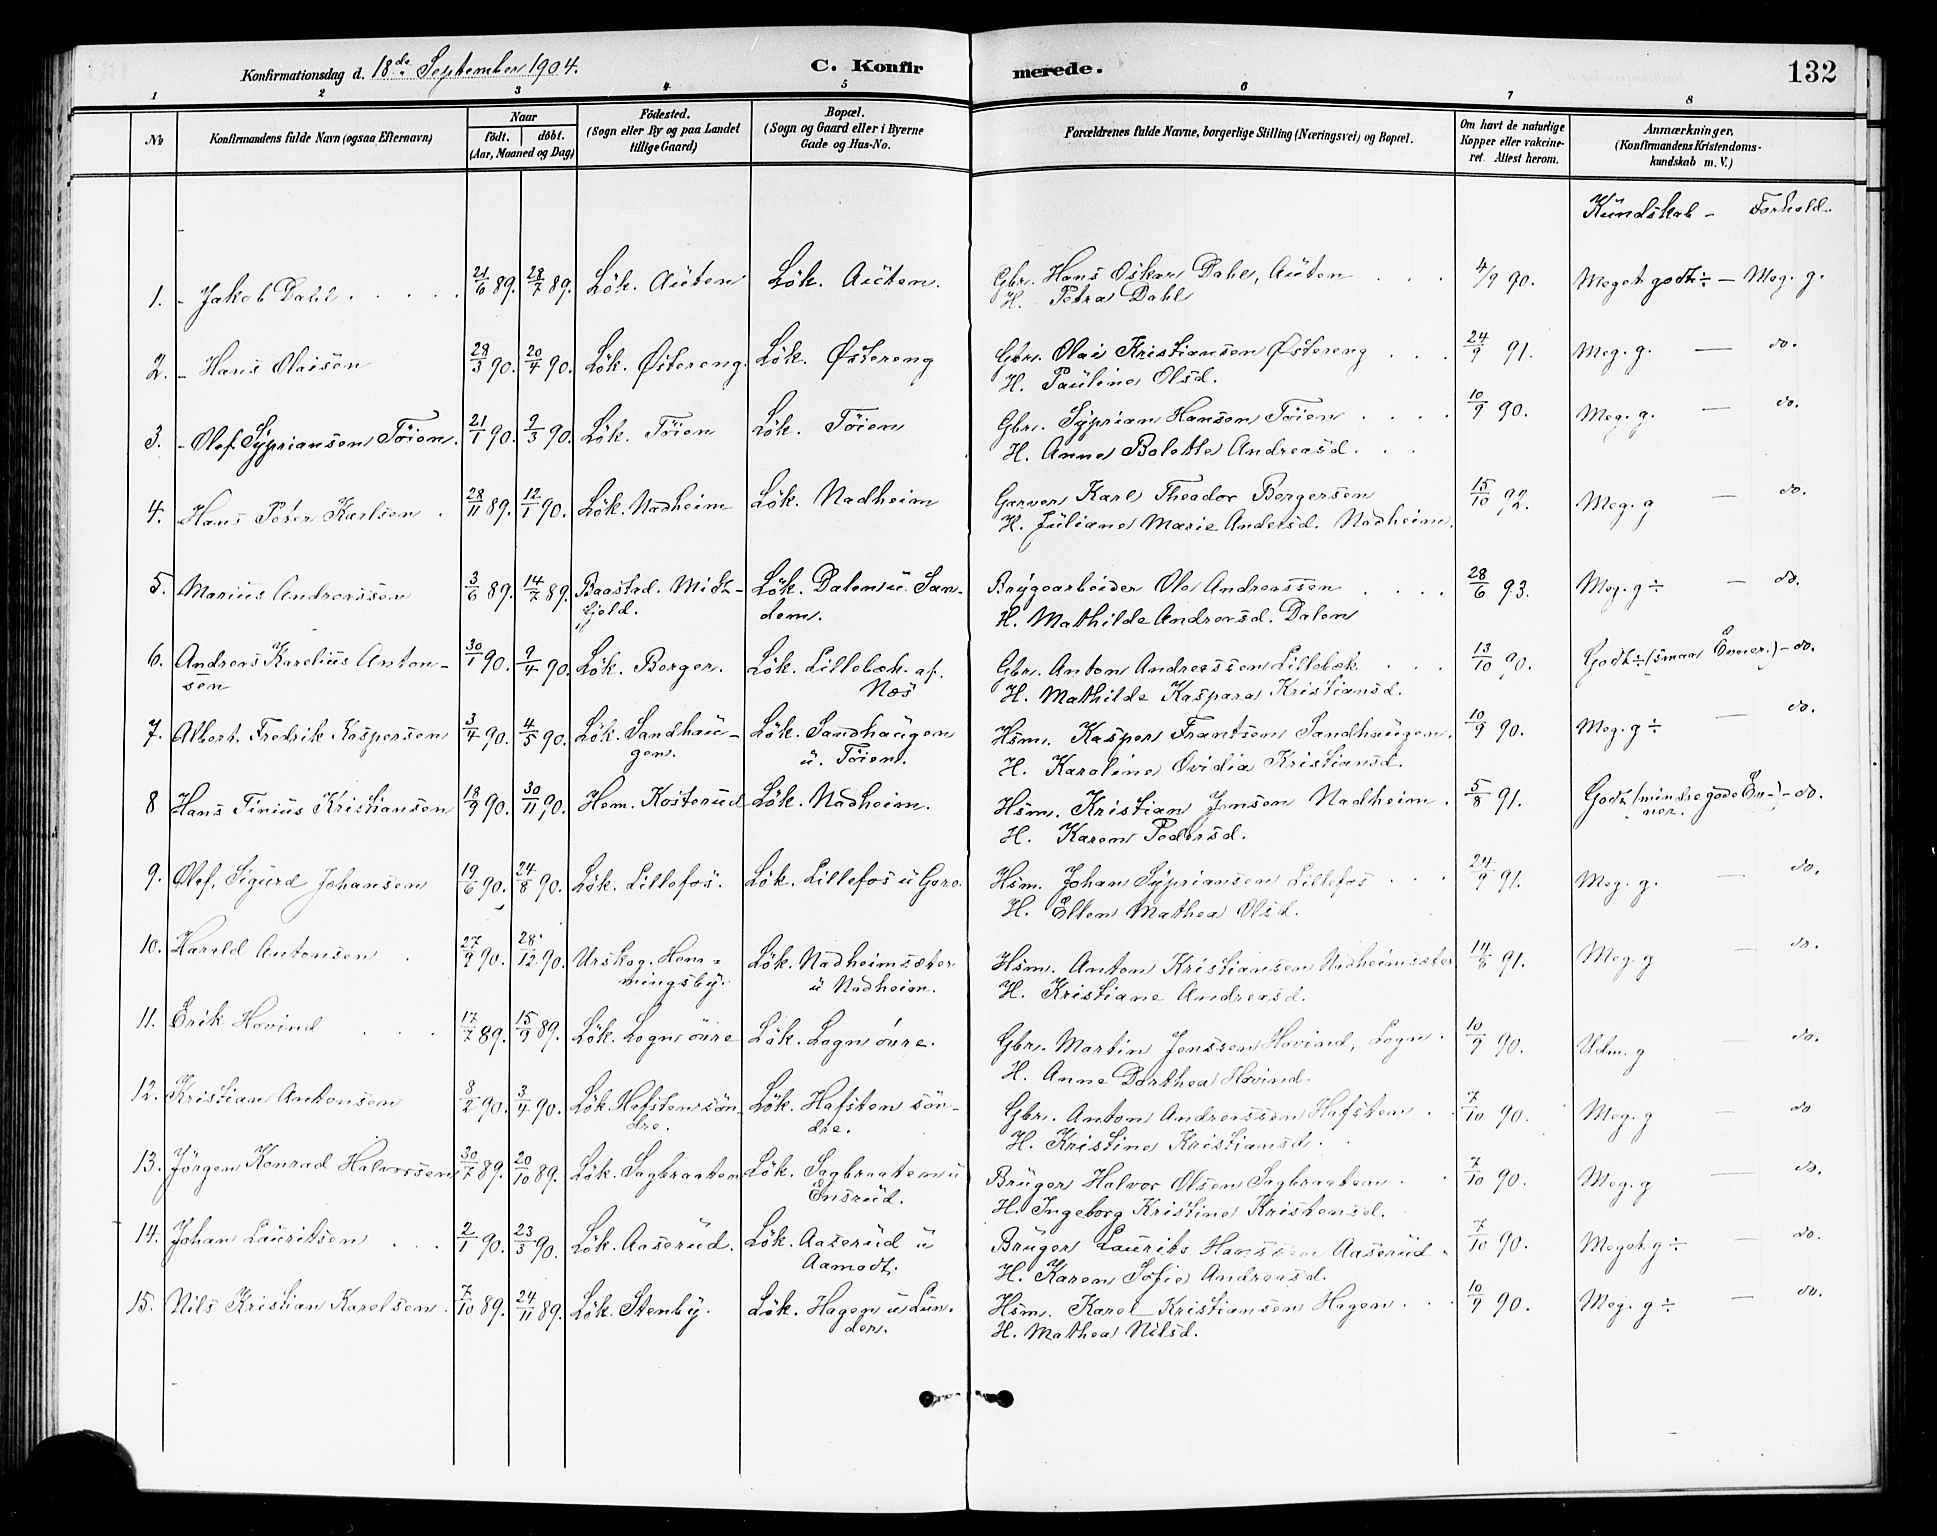 Konfirmationsdag d. 18de September 1904.
C. Konfirmerede.
132
1 2 3 4 5 6 7 8
No
Konfirmandens fulde Navn (ogsaa Efternavn)
Naar
født. døbt.
(Aar, Maaned og Dag)
Födested.
(Sogn eller By og paa Landet
tillige Gaard)
Bopæl.
(Sogn og Gaard eller i Byerne
Gade og Hus-No.
Forældrenes fulde Navne, borgerlige Stilling (Næringsvei) og Bopæl.
Om havt de naturlige
Kopper eller vakcine-
ret. Attest herom.
Anmærkninger.
(Konfirmandens Kristendoms-
kundskab m. V.)
Kundskab – Forhold.
1. - Jakob Dahl 21/6 89. 28/7 89. Løk. Auten Løk. Auten. Gbr. Hans Oskar Dahl, Auten 4/9 90. Meget godt ÷ – Meg. g.
H. Petra Dahl
2. - Hans Olaisen 28/3 90. 20/4 90. Løk. Østereng. Løk. Østereng Gbr. Olai Kristiansen Østereng 24/9 91. Meg. g. – do.
H. Pauline Olsd.
3. - Olaf Syprianseen Tøien. 21/1 90. 9/3 90. Løk. Tøien Løk. Tøien Gbr. Syprian Hansen Tøien 10/9 90. Meg. g. – do.
H. Anne Bolette Andreasd.
4. Hans Peter Karlsen 28/11 89. 12/1 90. Løk. Nadheim Løk. Nadheim Garver Karl Theodor Bergersen 15/10 92. Meg. g – do.
H. Juliane Marie Andersd. Nadheim.
5. Marius Andreassen 3/6 89. 14/7 89. Baastad. Midt- Løk. Dalen u San- Brygearbeider Ole Andreassen 28/6 93. Meg. g ÷ – do.
fjeld. dem. H. Mathilde Andreasd. Dalen
6. Andreas Karelius Anton- 30/1 90. 9/4 90. Løk. Berger. Løk. Lillebæk. af. Gbr. Anton Andreassen Lillebæk 13/10 90. Godt ÷ (smaa Evner.) – do.
sen Næs H. Mathilde Kaspara Kristiansd.
7. Albert Fredrik Kaspersen 3/4 90. 4/5 90. Løk. Sandhau- Løk. Sandhaugen Hsm. Kasper Frantsen Sandhaugen. 10/9 90. Meg. g ÷ – do.
gen. u. Tøien. H. Karoline Ovidia Kristiansd.
8 Hans Tinius Kristiansen 18/9 90. 30/11 90. Hem. Kosterud Løk. Nadheim. Hsm. Kristian Jensen Nadheim. 5/8 91. Godt (mindre gode Ev-) – do.
ner. H. Karen Pedersd.
9. Olaf Sigurd Johansen 19/6 90. 24/8 90. Løk. Lillefos. Løk. Lillefos u Gero. Hsm. Johan Syprianseen Lillefos 24/9 91. Meg. g. – do.
H. Ellen Mathea Olsd.
10. Harald Antonsen 27/9 90. 28/12 90. Urskog. Hem- Løk. Nadheimsæter Hsm. Anton Kristiansen Nadheimsæter 14/8 91. Meg. g – do.
mingsby. u Nadheim. H. Kristiane Andreasd.
11. Erik Hovind 17/7 89. 15/9 89. Løk. Logn øvre Løk. Logn øvre. Gbr. Martin Jenssen Hovind, Logn. 10/9 90. Udm. g do.
H. Anne Dorthea Hovind.
12. Kristian Antonsen 8/2 90. 3/4 90. Løk. Hafsten søn- Løk. Hafsten søn- Gbr. Anton Andreassen Hafsten 7/10 90. Meg. g – do
dre. dre. H. Kristine Kristiansd.
13. Jørgen Konrad Halvorsen 30/7 89. 20/10 89. Løk. Sagbraaten Løk. Sagbraaten u Bruger Halvor Olsen Sagbraaten 7/10 90. Meg. g – do.
Ensrud. H. Ingeborg Kristine Kristensd.
14. Johan Lauritsen 2/1 90. 23/3 90. Løk. Aaserud. Løk. Aaserud u Bruger Laurits Hanssen Aaserud 7/10 90. Meget g ÷ – do.
Aamodt. H. Karen Sofie Andreasd.
15. Nils Kristian Karelsen. 7/10 89. 24/11 89. Løk. Stenby. Løk. Hagen u Lun- Hsm. Karel Kristiansen Hagen 10/9 90. Meg. g ÷ – do.
der. H. Mathea Nilsd.